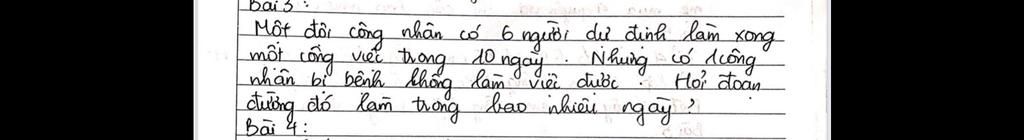 Bài 3:
Một đội công nhân có 6 người dự định làm xong
một công việc trong 10 ngày. Nhưng có 1 công
nhân bị bệnh không làm việc được. Hỏi đoạn
đường đó làm trong bao nhiêu ngày?
Bài 4: